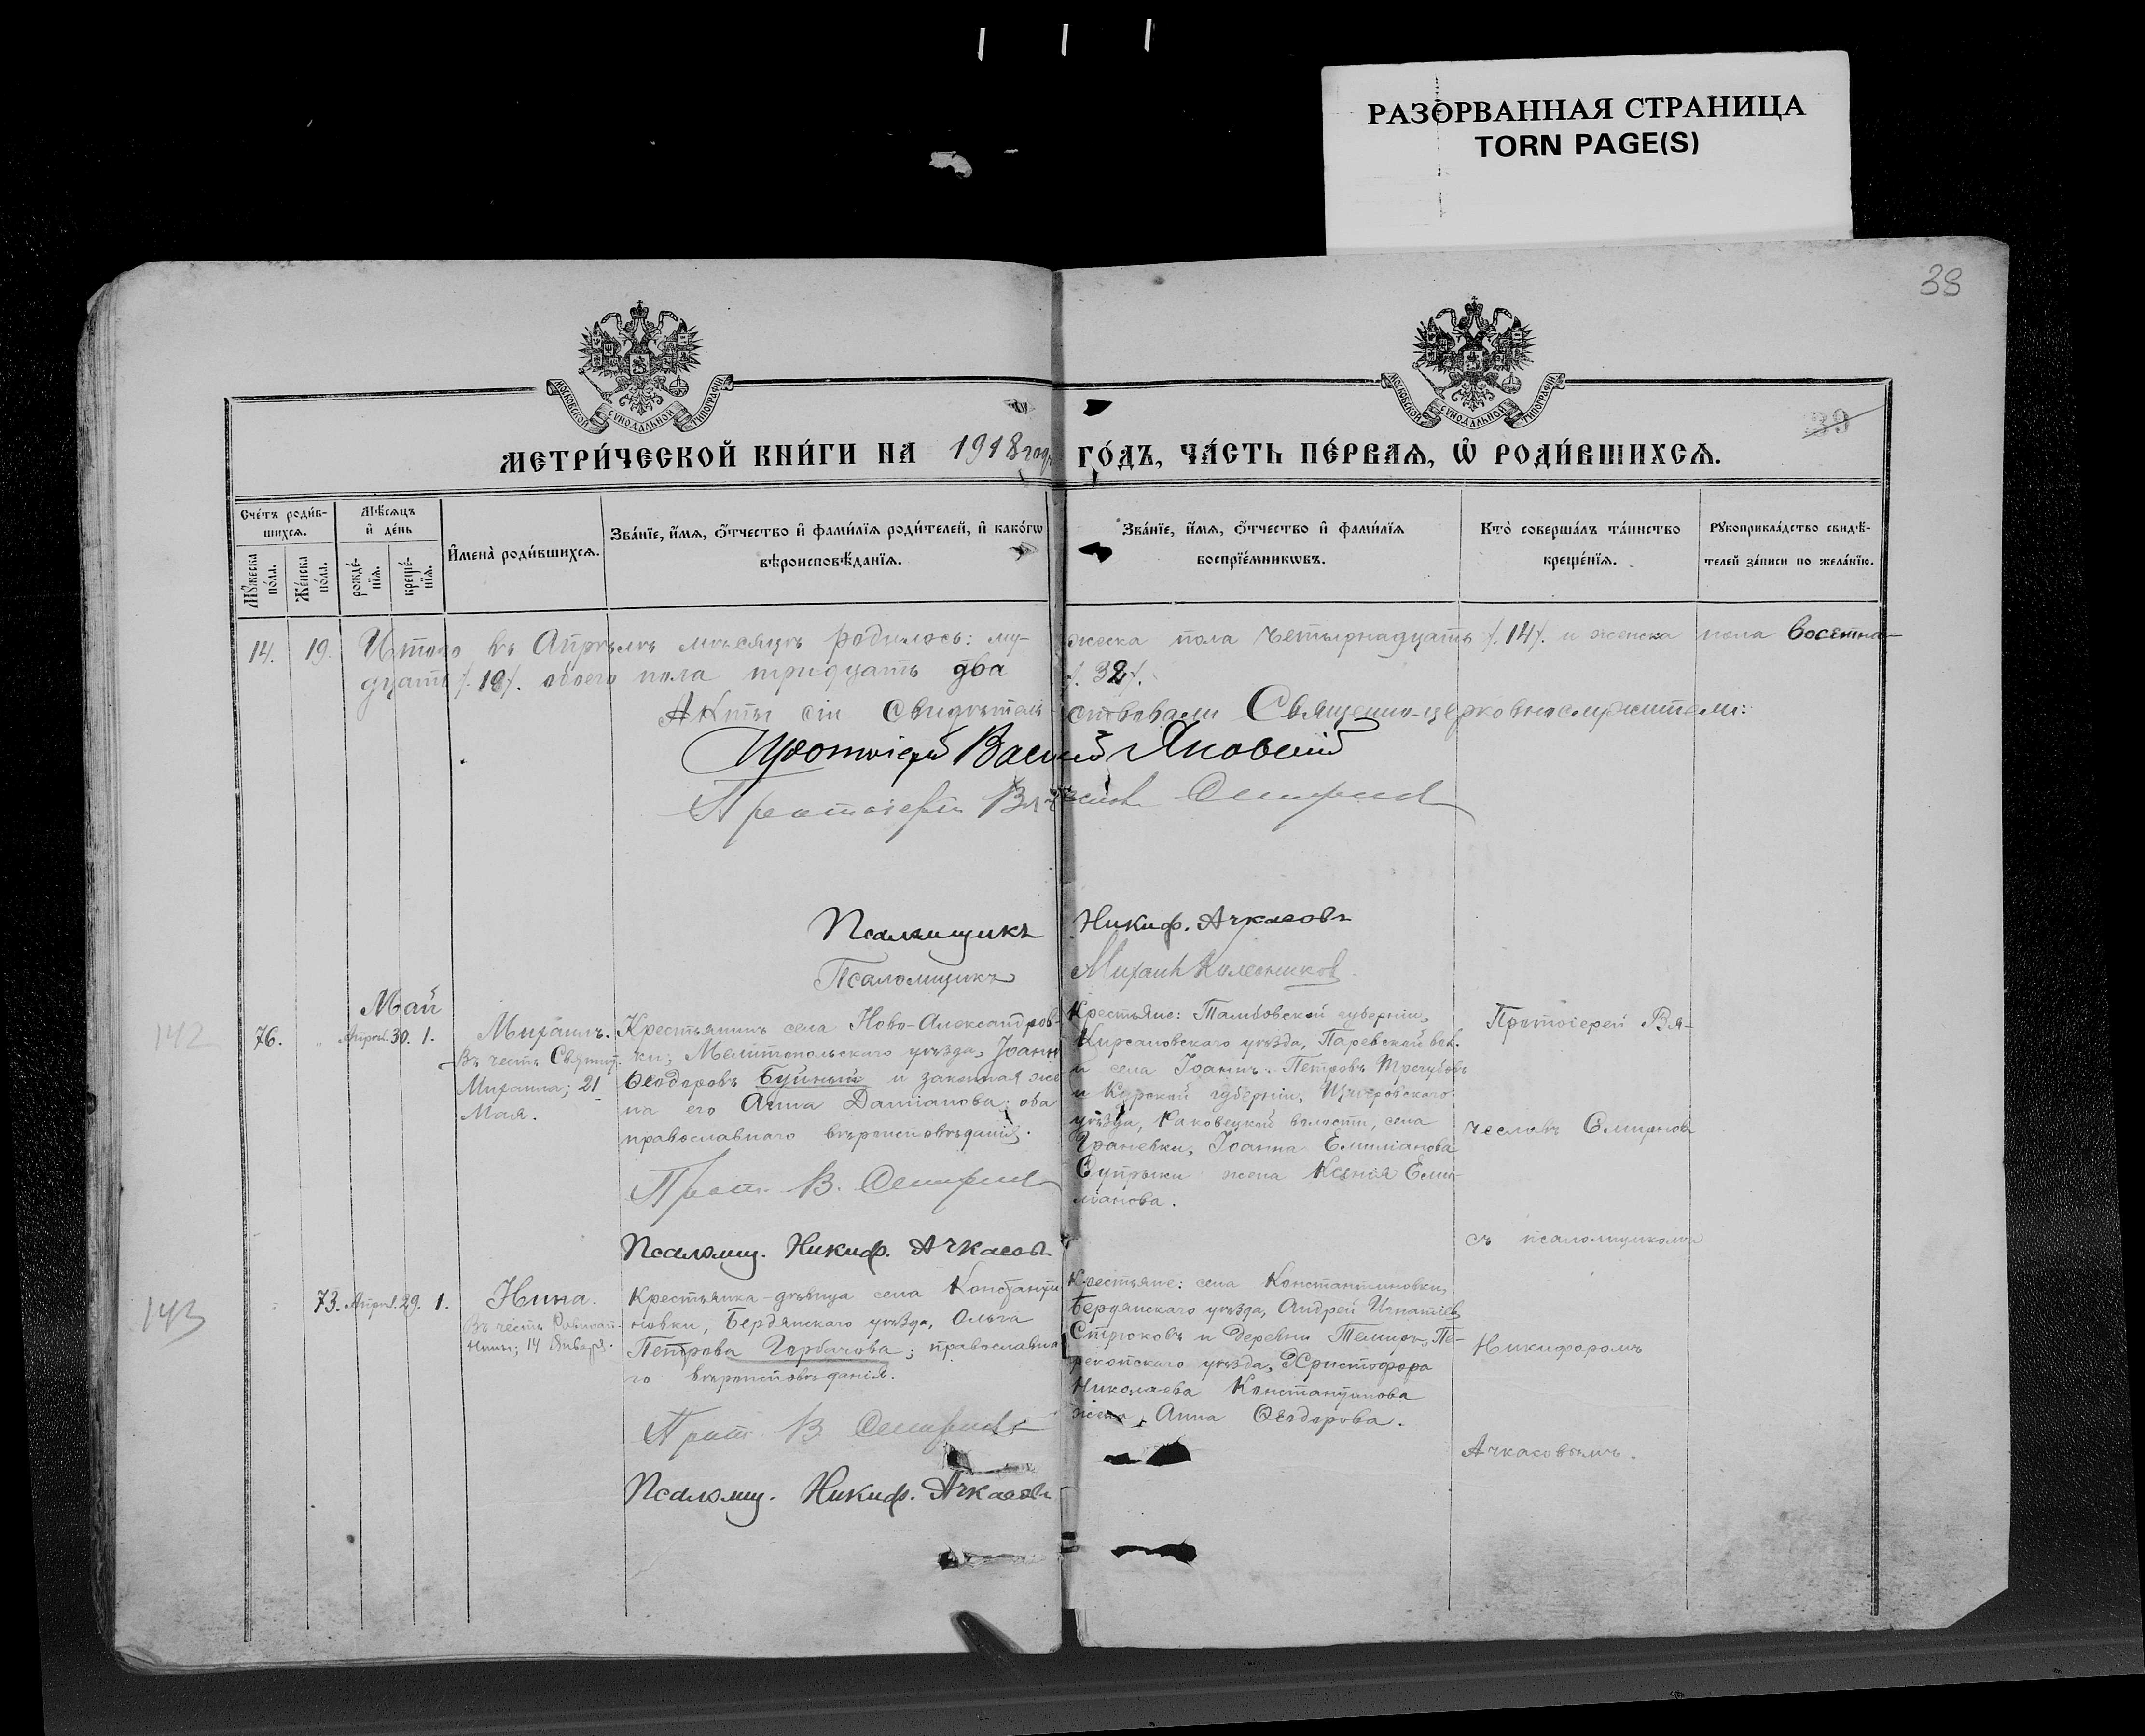 РАЗОРВАННАЯ СТРАНИЦА
TORN PAGE(S)
38
МОСКОВСКОЙ СѴНОДАЛЬНОЙ ТИПОГРАФІИ
МОСКОВСКОЙ СѴНОДАЛЬНОЙ ТИПОГРАФІИ
39
МЕТРИ́ЧЕСКОЙ КНИ́ГИ НА 1918 года ГО́ДЪ, ЧА́СТЬ ПЕ́РВАѦ, Ѡ҆ РОДИ́ВШИХСѦ.
Сче́тъ роди́в-
шихсѧ.
Мꙋ́жеска
по́ла.
Же́нска
по́ла.
Мѣ́сѧцъ
и҆ де́нь
рожде́-
нїѧ.
креще́-
нїѧ.
И҆мена̀ роди́вшихсѧ.
Зва́нїе, и҆́мѧ, ѻ҆́тчество и҆ фами́лїѧ роди́телей, и҆ како́гѡ
вѣроисповѣ́данїѧ.
Зва́нїе, и҆́мѧ, ѻ҆́тчество и҆ фами́лїѧ
воспрїе́мникѡвъ.
Кто̀ соверша́лъ та́инство
креще́нїѧ.
Рꙋкоприкла́дство свидѣ́-
телей за́писи по жела́нїю.
14. 19. Итого въ Апрѣлѣ мѣсяцѣ родилось: му- жеска пола четырнадцать /.14/. и женска пола восемна-
дцать /.18/. обоего пола тридцать два /.32/.
Акты сіи свидѣтель ствовали Священно-церковнослужители:
Протоіерей Василій Яновскій
Протоіерей Вячеславъ Смирновъ
Псаломщикъ Никиф. Ачкасовъ
Псаломщикъ Михаил Колесников
Май
142
76. " Апрѣл. 30. 1.
Михаилъ.
Въ честь Святит.
Михаила; 21
Мая.
Крестьянинъ села Ново-Александров-
ки, Мелитопольскаго уѣзда, Іоаннъ
Ѳеодоровъ Буйный и законная же
на его Анна Даміанова; оба
православнаго вѣроисповѣданія.
Прот. В. Смирновъ
Псаломщ. Никиф. Ачкасовъ
Крестьяне: Тамбовской губерніи,
Кирсановскаго уѣзда, Паревской вол.
и села Іоаннъ Петровъ Трегубовъ
и Курской губерніи, Щигровскаго
уѣзда, Раковецкой волости, села
Грановки, Іоанна Емиліанова
Супрыки жена Ксенія Еми-
ліанова.
Протоіерей Вя-
чеславъ Смирновъ
съ псаломщикомъ
Никифоромъ
Ачкасовымъ.
143
" 73. Апрѣл. 29. 1.
Нина.
Въ честь Равноап.
Нины; 14 Января.
Крестьянка-дѣвица села Константи
новки, Бердянскаго уѣзда, Ольга
Петрова Горбачова; православна
го вѣроисповѣданія.
Прот. В Смирновъ
Псаломщ. Никиф. Ачкасовъ
Крестьяне: села Константиновки,
Бердянскаго уѣзда, Андрей Игнатіевъ
Стрюковъ и деревни Темиръ, Пе-
рекопскаго уѣзда, Христофора
Николаева Константинова
жена, Анна Ѳеодорова.